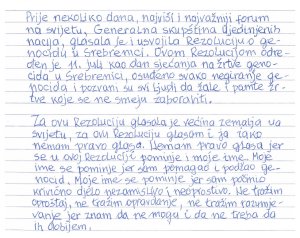 Prije nekoliko dana, najviši i najvažniji forum
na svijetu, Generalna skupština Ujedinjenih
nacija, glasala je i usvojila Rezoluciju o ge-
nocidu u Srebrenici. Ovom Rezolucijom odre-
đen je 11. juli kao dan sjećanja na žrtve geno-
cida u Srebrenici, osuđeno svako negiranje ge-
nocida i pozvani su svi ljudi da žale i pamte žr-
tve koje se ne smeju zaboraviti.
Za ovu Rezoluciju glasala je većina zemalja u
svijetu, za ovu Rezoluciju glasam i ja iako
nemam pravo glasa. Nemam pravo glasa jer
se u ovoj Rezoluciji pominje i moje ime. Moje
ime se pominje jer sam pomagao i podržao ge-
nocid. Moje ime se pominje jer sam počinio
krivično djelo nezamislivo i neoprostivo. Ne tražim
oproštaj, ne tražim opravdanje, ne tražim razumje-
vanje jer znam da ne mogu i da ne treba da
ih dobijem.